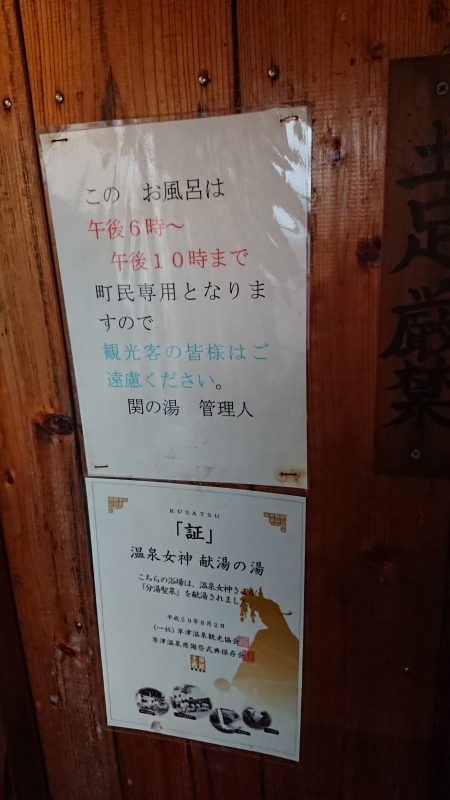 この　お風呂は
午後６時～
午後１０時まで
町民専用となりま
すので
観光客の皆様はご
遠慮ください。
関の湯　管理人
土足厳禁
KUSATSU
「証」
温泉女神 献湯の湯
こちらの浴場は、温泉女神さまより
「分湯聖泉」を献湯されました
平成29年8月2日
(一社)草津温泉観光協会
草津温泉感謝祭式典保存会